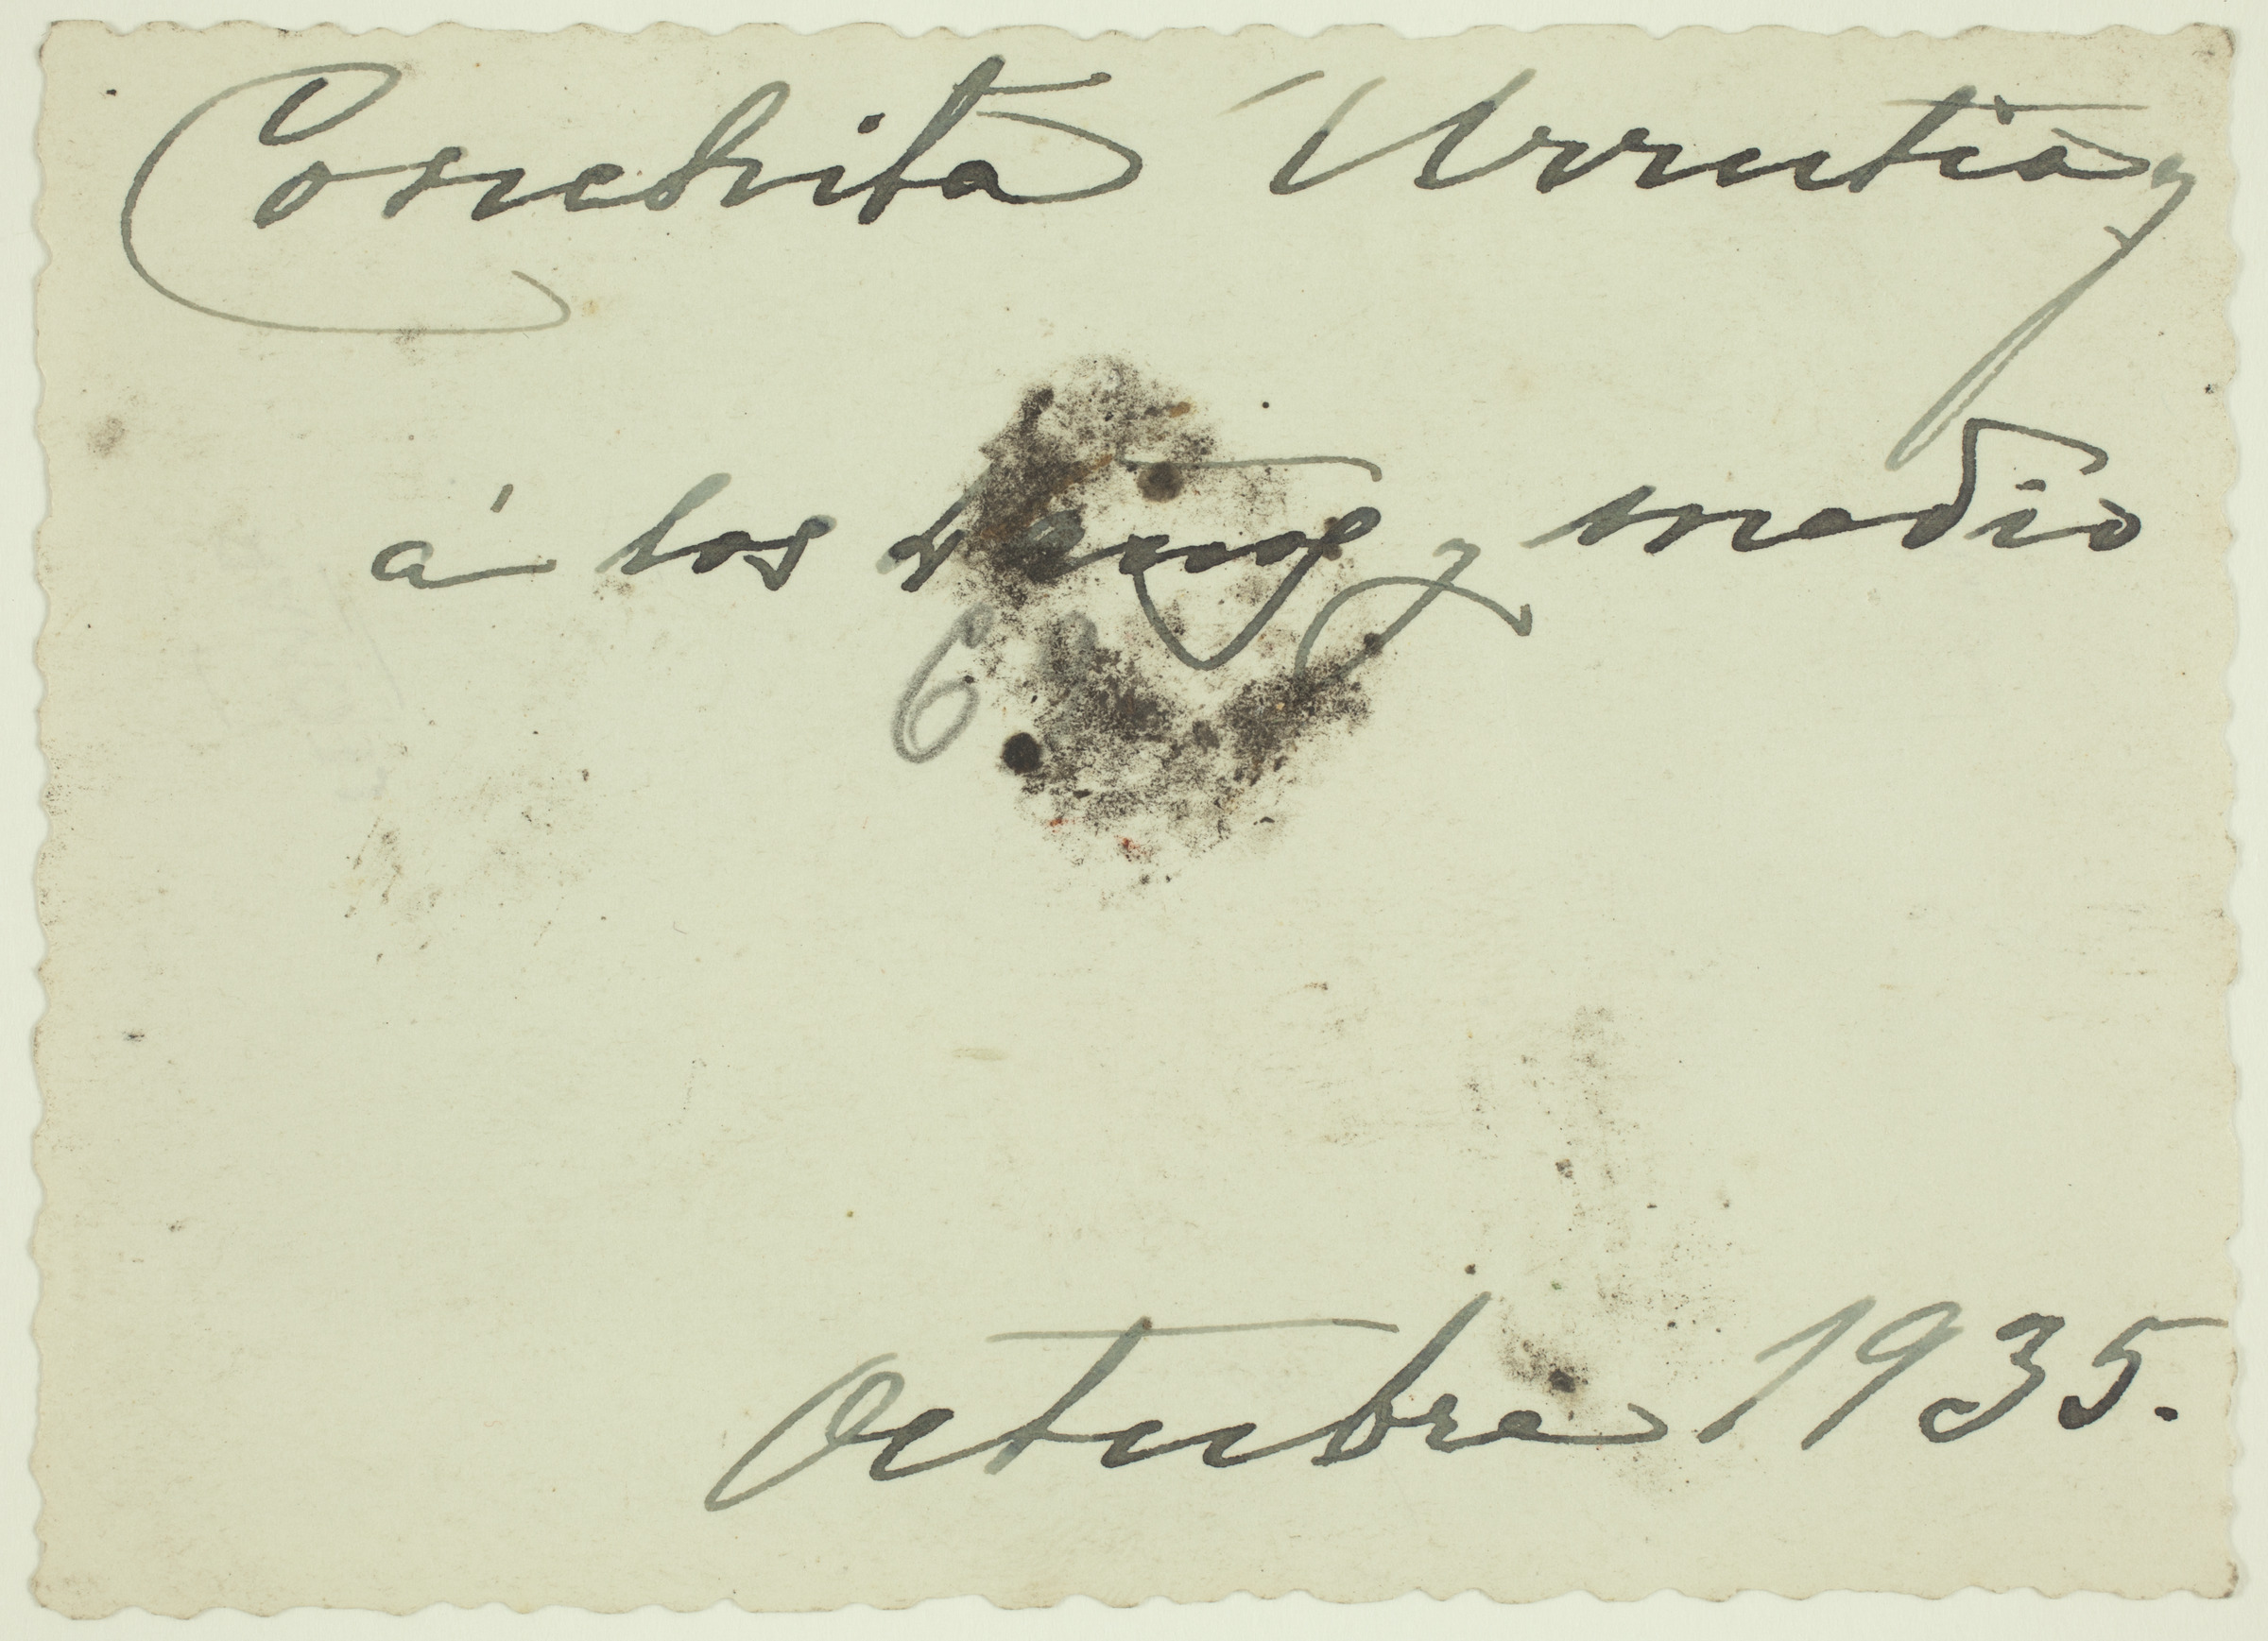 Conchita Urrutia
á los 4 años y medio
6
Octubre 1935.